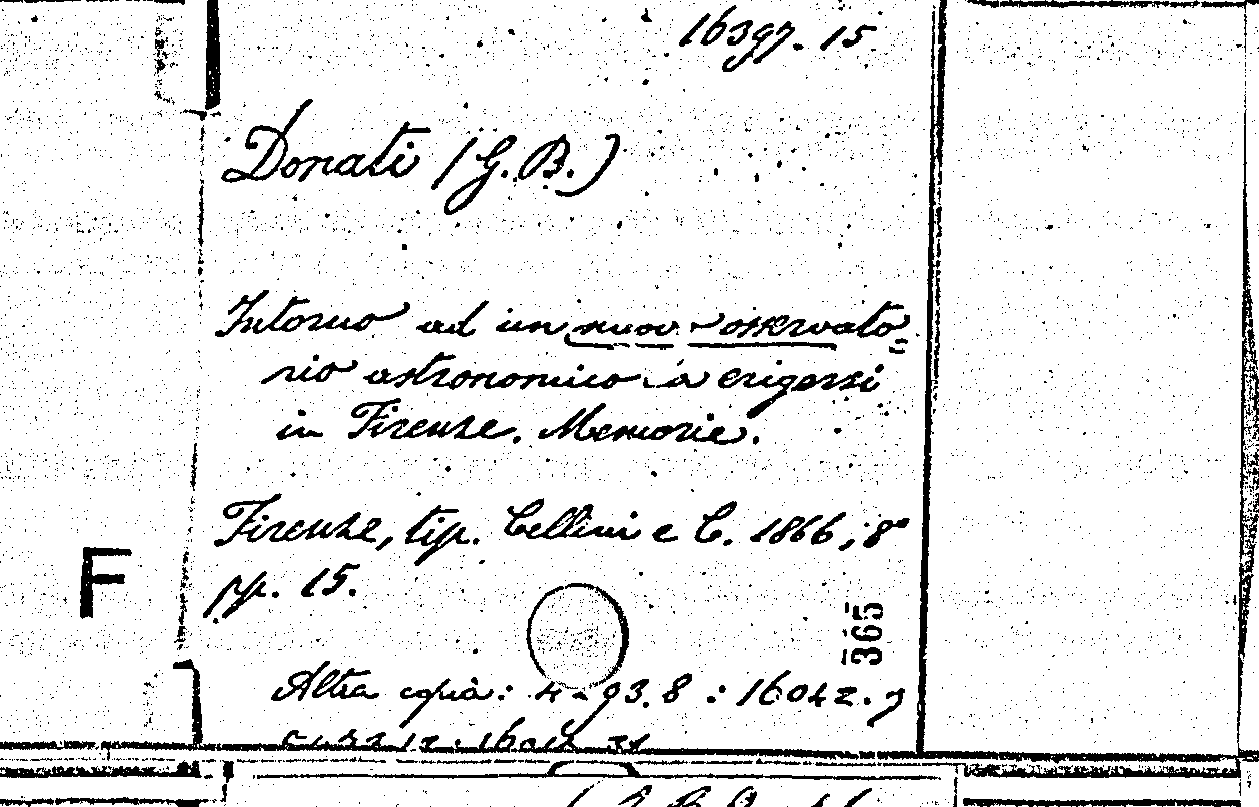 16397. 15
Donati (G.B.)
Intorno ad un nuovo osservato=
rio astronomico a erigersi
in Firenze. Memorie.
Firenze, tip. Cellini e C. 1866, 8°
F
pp. 15.
365
Altra copia: 4-93.8 : 16042.